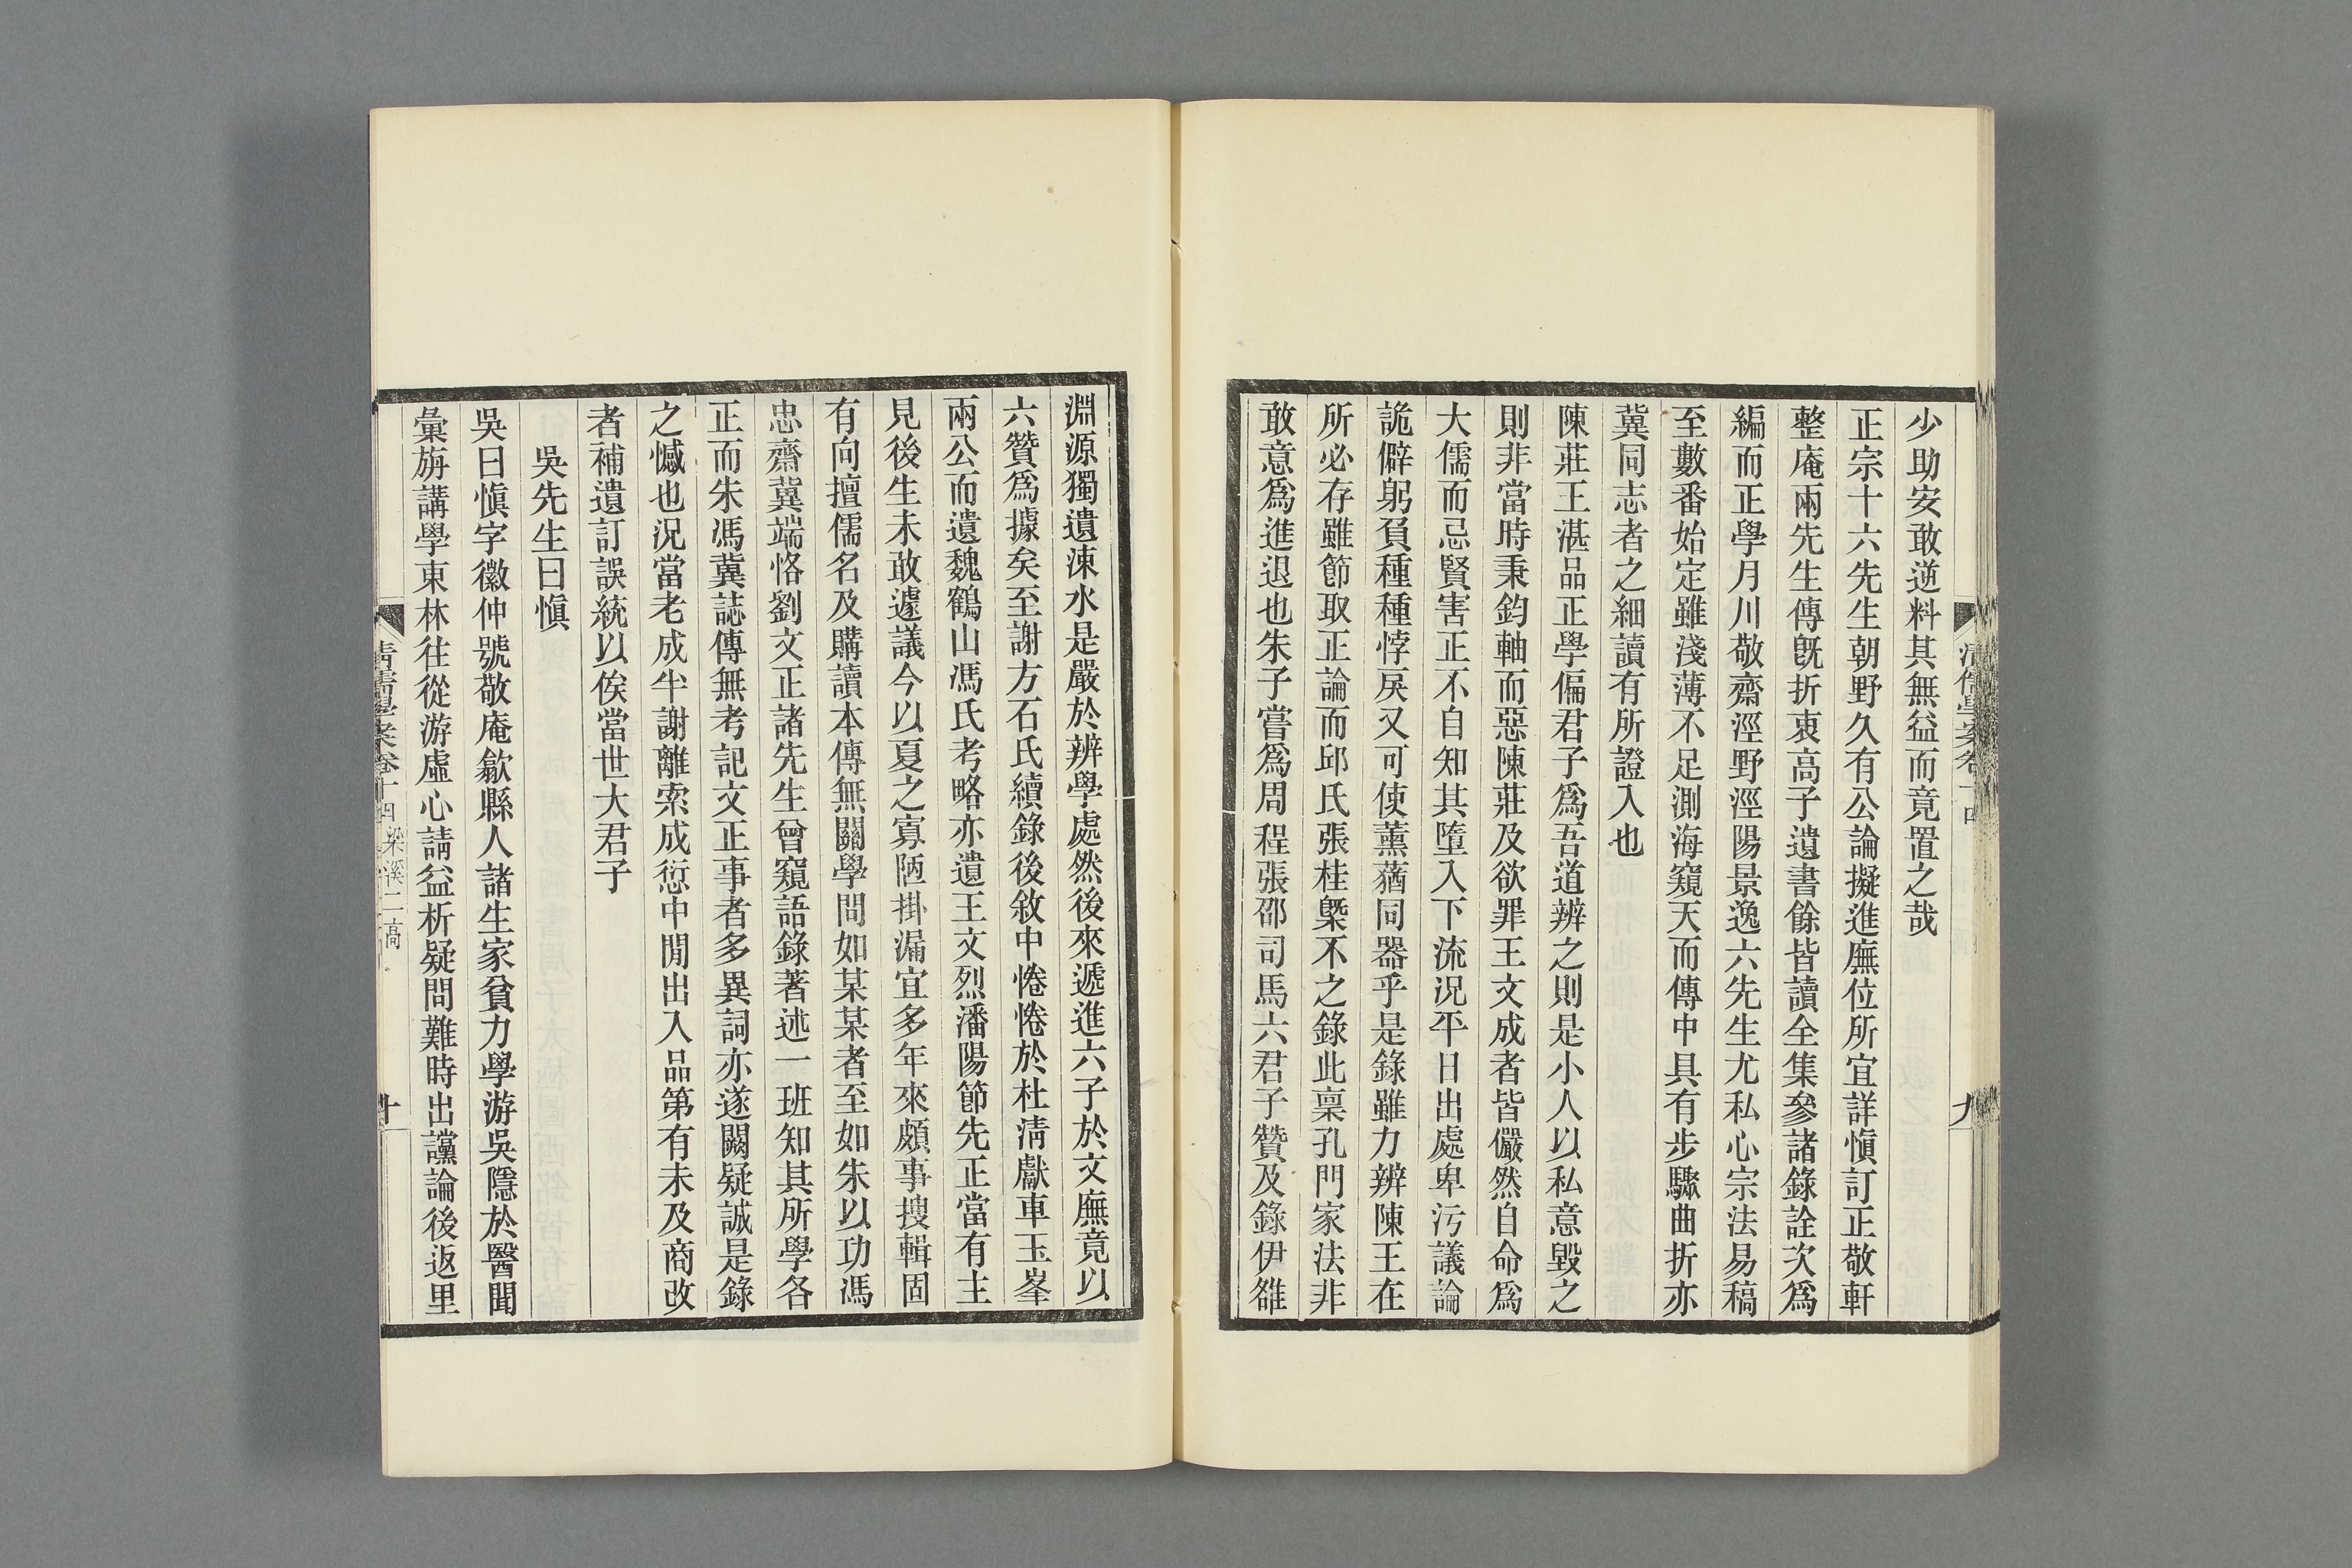 少助安敢逆料其無益而竟置之哉
正宗十六先生朝野久有公論擬進廡位所宜詳愼訂正敬軒
整庵兩先生傳旣折衷高子遺書餘皆讀全集參諸錄詮次爲
編而正學月川敬齋涇野涇陽景逸六先生尤私心宗法易稿
至數番始定雖淺薄不足測海窺天而傳中具有步驟曲折亦
冀同志者之細讀有所證入也
陳莊王湛品正學偏君子爲吾道辨之則是小人以私意毀之
則非當時秉鈞軸而惡陳莊及欲罪王文成者皆儼然自命爲
大儒而忌賢害正不自知其墮入下流況平日出處卑污議論
詭僻躬負種種悖戾又可使薰蕕同器乎是錄雖力辨陳王在
所必存雖節取正論而邱氏張桂槩不之錄此稟孔門家法非
敢意爲進退也朱子嘗爲周程張邵司馬六君子贊及錄伊雒
淵源獨遺涑水是嚴於辨學處然後來遞進六子於文廡竟以
六贊爲據矣至謝方石氏續錄後敘中惓惓於杜淸獻車玉峯
兩公而遺魏鶴山馮氏考略亦遺王文烈潘陽節先正當有主
見後生未敢遽議今以夏之寡陋掛漏宜多年來頗事搜輯固
有向擅儒名及購讀本傳無關學問如某某者至如朱以功馮
忠齋冀端恪劉文正諸先生曾窺語錄著述一班知其所學各
正而朱馮冀誌傳無考記文正事者多異詞亦遂闕疑誠是錄
之憾也況當老成半謝離索成愆中閒出入品第有未及商改
者補遺訂誤統以俟當世大君子
吳先生曰愼
吳曰愼字徽仲號敬庵歙縣人諸生家貧力學游吳隱於醫聞
彙旃講學東林往從游虛心請益析疑問難時出讜論後返里
清儒學案卷十四 梁溪二高
十
清儒學案卷十四
九